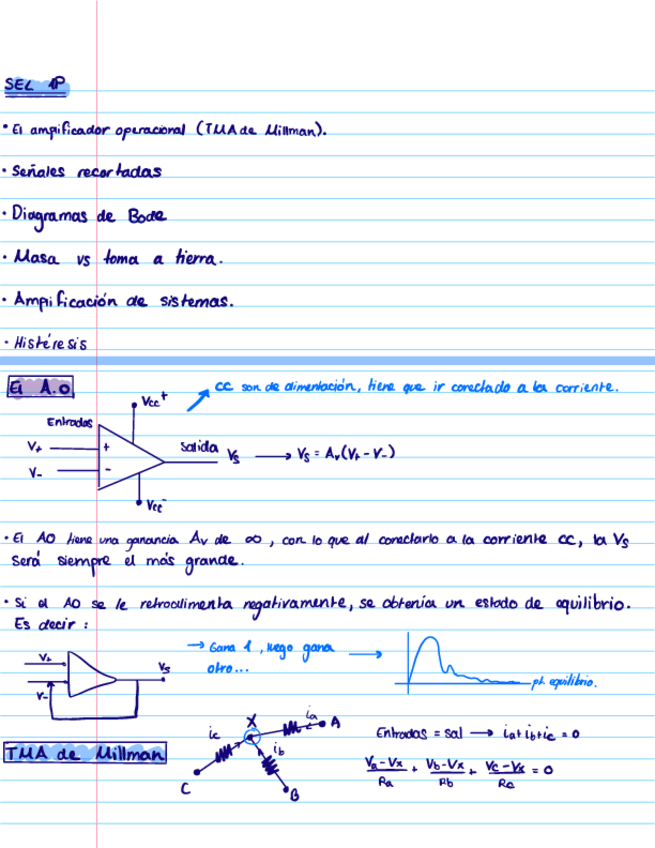 SEL 1P
• El ampificador operacional (TMA de Millman).
• Señales recortadas
• Diagramas de Bode
• Masa vs toma a tierra.
• Ampificación de sistemas.
• Histéresis
El A.O
CC son de alimentación, tiene que ir conectado a la corriente.
Vcc+
Entradas
V+
+
V-
-
Salida Vs → Vs = Av(V+ - V-)
Vcc-
• El AO tiene una ganancia Av de ∞, con lo que al conectarlo a la corriente cc, la Vs
será siempre el más grande.
• Si al AO se le retroalimenta negativamente, se obtenía un estado de equilibrio.
Es decir:
V+
V-
Vs
→ Gana 1, luego gana →
otro...
pt. equilibrio.
TMA de Millman
X
ia
A
ic
ib
C
B
Entradas = sal → ia+ib+ic = 0
Va-Vx/Ra + Vb-Vx/Rb + Vc-Vx/Rc = 0